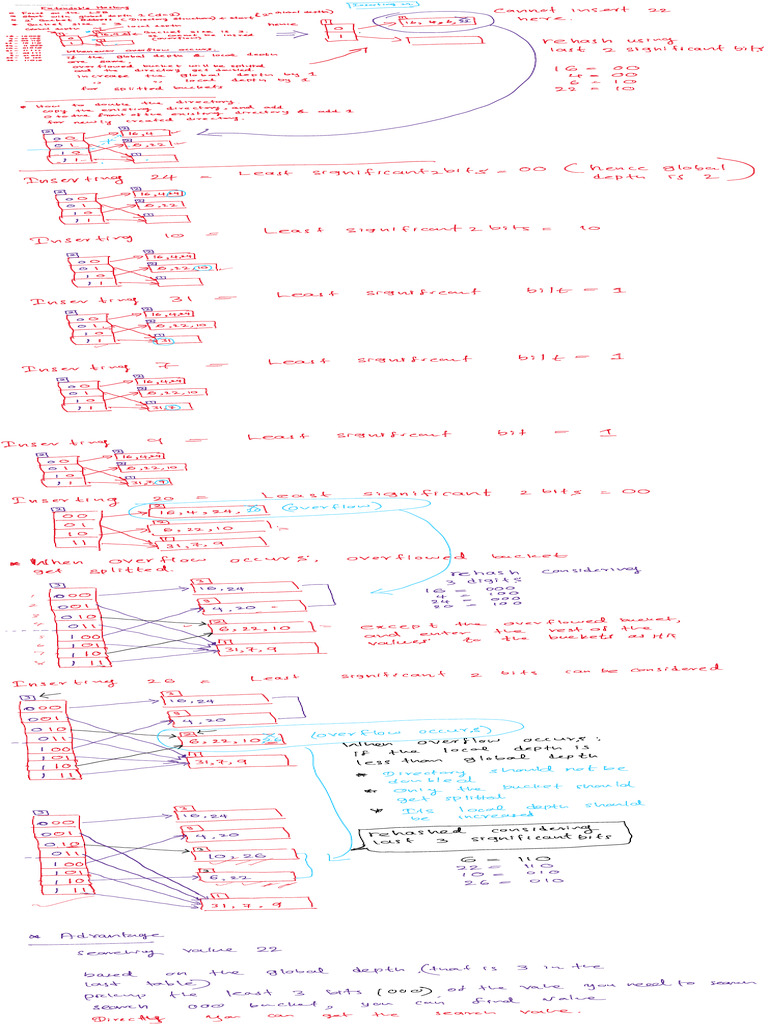 Extendable Hashing
Inserting 22
Cannot insert 22
here.
* Bucket size is 3
0
1
16, 4, 6, 22
rehash using
last 2 significant bits
16 = 00
4 = 00
6 = 10
22 = 10
Whenever overflow occurs,
if the global depth & local depth
are same.
overflowed bucket will be splited
and the directory get doubled
increase the global depth by 1
local depth by 1
for splitted buckets
hence
* How to double the directory
copy the existing directory and add
0 to the front of the existing directory & add 1
for newly created directory.
2
00
01
10
11
2
16,4
2
6,22
1
Inserting 24 = Least significant 2 bits = 00 (hence global
depth is 2)
2
00
01
10
11
2
16,4,24
2
6,22
1
Inserting 10 = Least significant 2 bits = 10
2
00
01
10
11
2
16,4,24
2
6,22,10
1
Inserting 31 = Least significant bit = 1
2
00
01
10
11
2
16,4,24
2
6,22,10
1
31
Inserting 7 = Least significant bit = 1
2
00
01
10
11
2
16,4,24
2
6,22,10
1
31,7
Inserting 9 = Least significant bit = 1
2
00
01
10
11
2
16,4,24
2
6,22,10
1
31,7,9
Inserting 20 = Least significant 2 bits = 00
2
00
01
10
11
2
16,4,24,20 (overflow)
2
6,22,10
1
31,7,9
* When overflow occurs, overflowed bucket
get splitted.
rehash considering
3 digits
16 = 000
4 = 100
24 = 000
20 = 100
3
1 000
2 001
3 010
4 011
5 100
6 101
7 110
8 111
3
16,24
3
4,20
2
6,22,10
1
31,7,9
Except the overflowed bucket,
and enter the rest of the
values to the buckets as it is
Inserting 26 = Least significant 2 bits can be considered
3
000
001
010
011
100
101
110
111
3
16,24
3
4,20
2
6,22,10,26 (overflow occurs)
1
31,7,9
When overflow occurs:
if the local depth is
less than global depth
* Directory should not be
doubled
* Only the bucket should
get splitted
* It's local depth should
be increased
rehashed considering
last 3 significant bits
6 = 110
22 = 110
10 = 010
26 = 010
3
000
001
010
011
100
101
110
111
3
16,24
3
4,20
3
10,26
3
6,22
1
31,7,9
* Advantage
searching value 22
based on the global depth, (that is 3 in the
last table)
pickup the least 3 bits (000) of the value you need to search
search 000 bucket, you can find value
Directly you can get the search value.